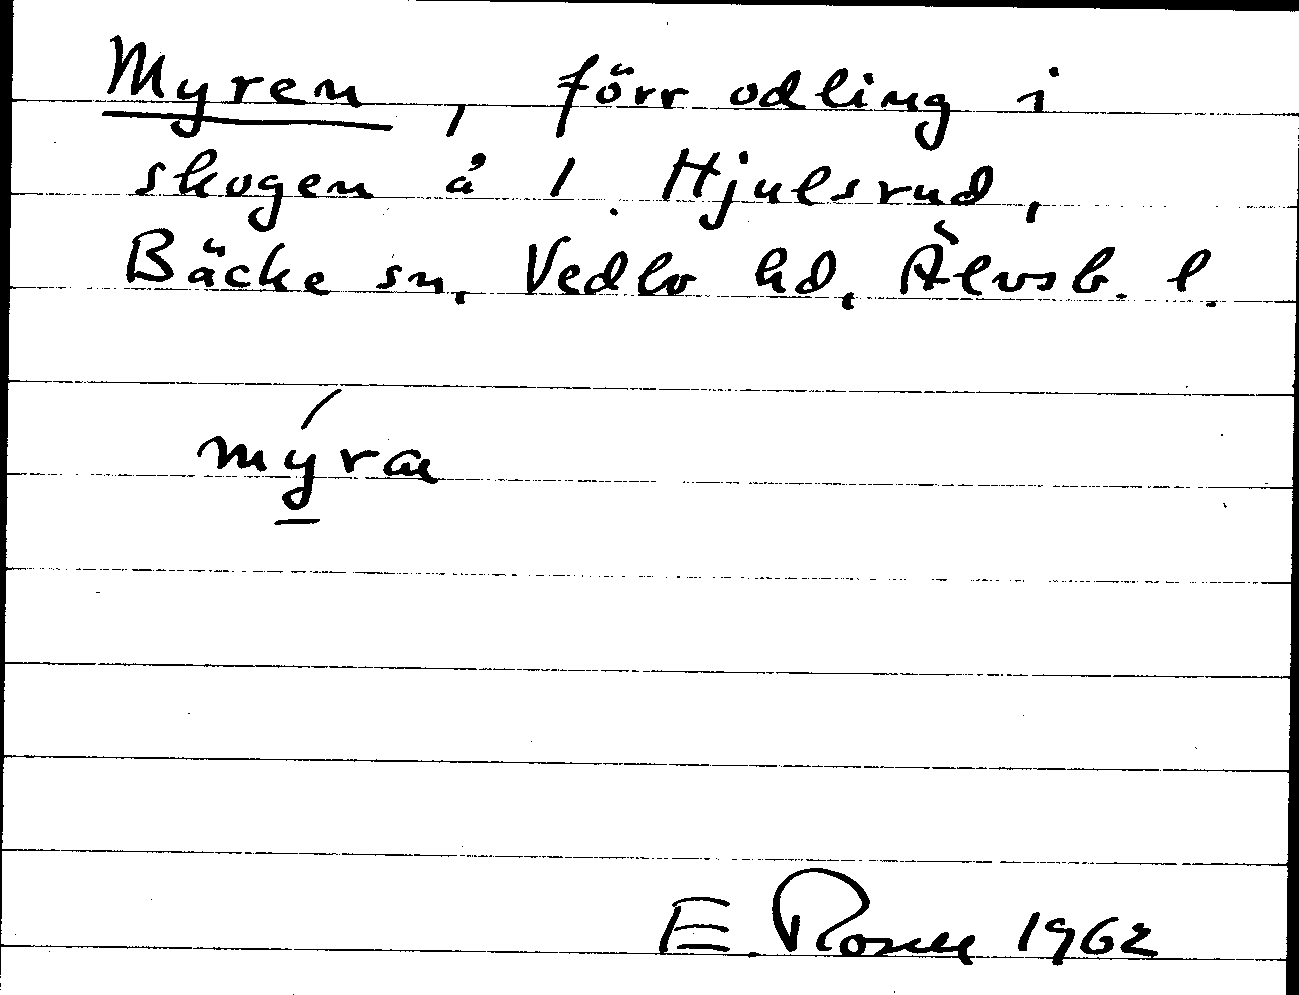 Myren, förr odling i
skogen å 1 Hjulsrud,
Bäcke sn, Vedbo hd, Älvsb. l.
mýra
E. Rosell 1962